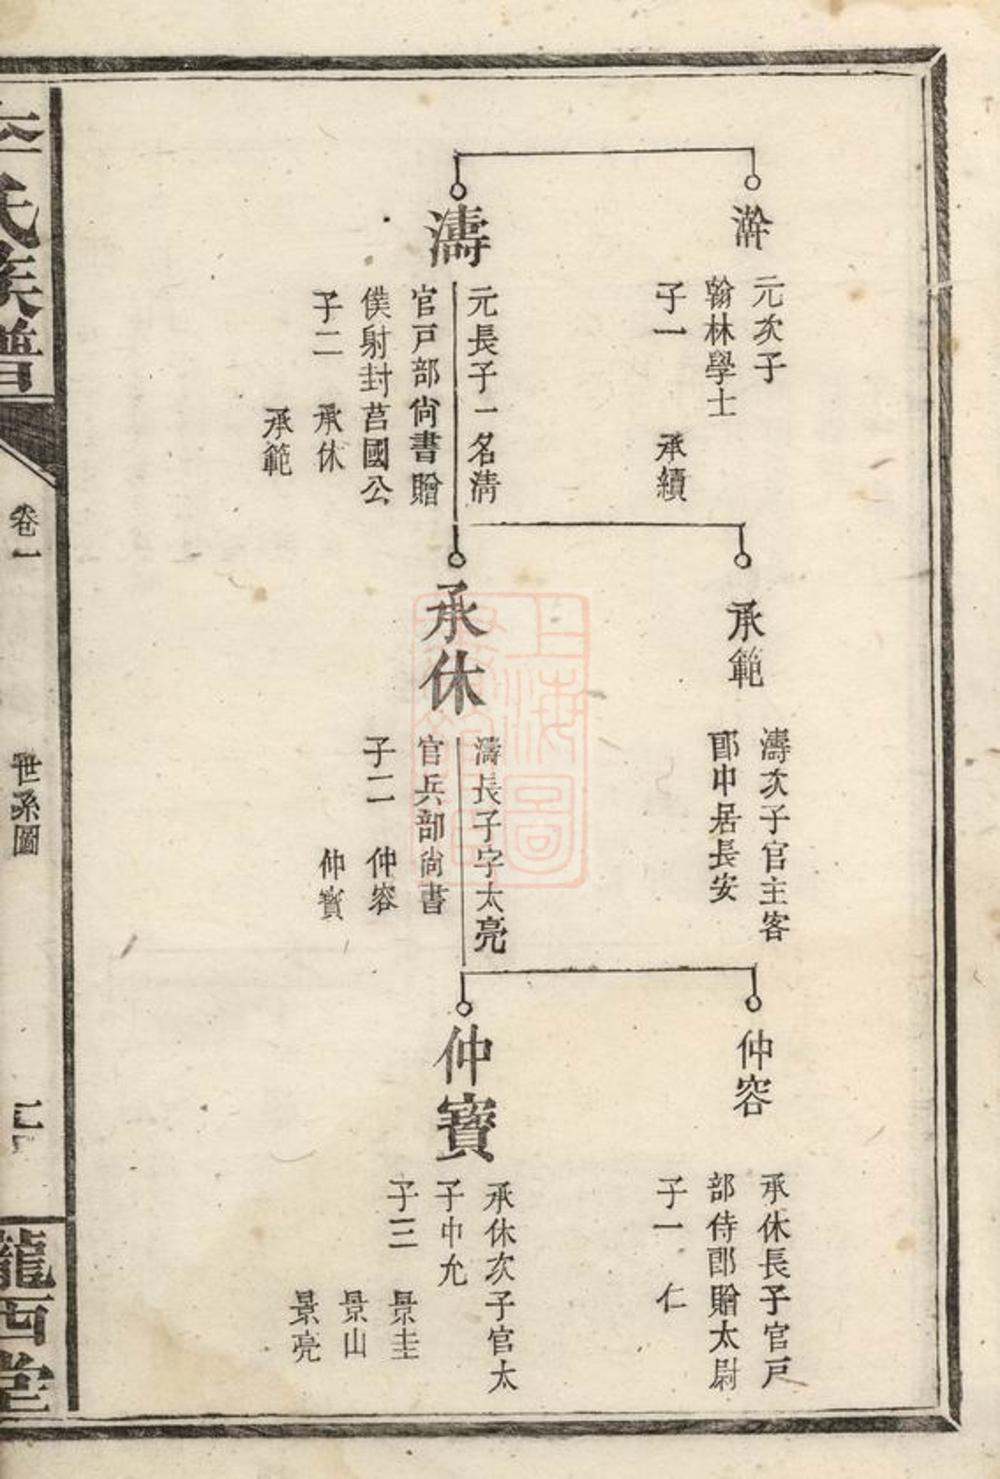 澣
元次子
翰林學士
子一 承續
濤
元長子一名清
官戸部尙書贈
僕射封莒國公
子二 承休
承範
承範
濤次子官主客
郎中居長安
承休
濤長子字太亮
官兵部尙書
子二 仲容
仲寶
仲容
承休長子官戸
部侍郎贈太尉
子一 仁
仲寶
承休次子官太
子中允
子三 景圭
景山
景亮
李氏族譜
卷一
世系圖
隴西堂
上海圖